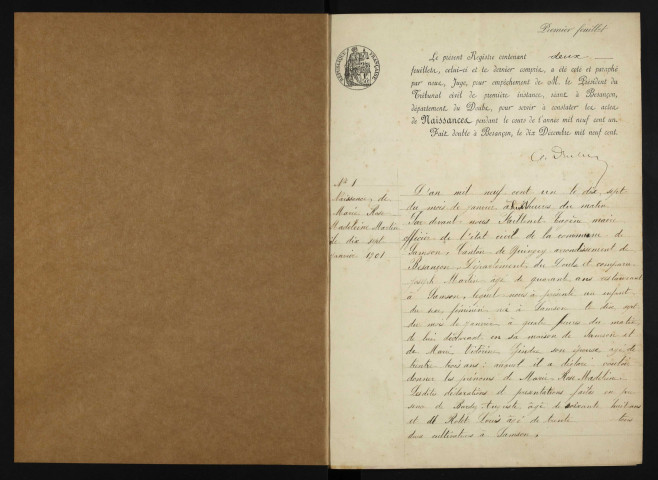 Premier feuillet
RÉPUBLIQUE FRANÇAISE
Le présent Registre contenant deux
feuillets, celui-ci et le dernier compris, a été coté et paraphé
par nous, Juge, pour empêchement de M. le Président du
Tribunal civil de première instance, séant à Besançon,
département du Doubs, pour servir à constater les actes
de Naissances pendant le cours de l'année mil neuf cent un.
Fait double à Besançon, le dix Décembre mil neuf cent.
No 1
Naissance de
Marie Rose
Madeleine Martin
le dix sept
janvier 1901
L'an mil neuf cent un le dix sept
du mois de janvier à heures du matin
Par devant nous maire
officier de l'état civil de la commune de
Samson, Canton de Quingey arrondissement de
Besançon, Département du Doubs et comparu
Joseph Martin âgé de quarante ans
à Samson, lequel nous a présenté un enfant
du sexe féminin né à Samson le dix sept
du mois de janvier à quatre heures du matin
de lui déclarant en sa maison de Samson et
de Marie Victorine son épouse, âgée de
trente trois ans ; auquel il a déclaré vouloir
donner les prénoms de Marie Rose Madeleine.
Lesdites déclarations et présentations faites en pré
sence de Auguste, âgé de soixante huit ans
et de Louis âgé de trente trois
deux cultivateurs à Samson.